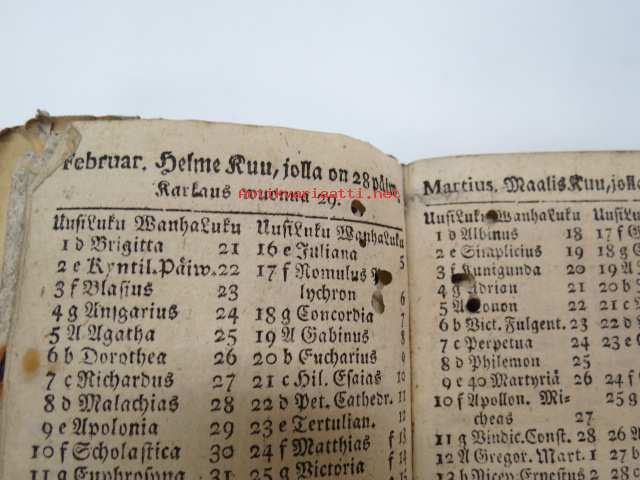 Februar. Helme Kuu, jolla on 28 päiw.
Karkaus wuonna 29.
UusiLuku WanhaLuku UusiLuku WanhaLuku
1 d Brigitta 21 16 e Juliana 5
2 e Kyntil.Päiw. 22 17 f Romulus
3 f Blasius 23 lychron 6
4 g Ansgarius 24 18 g Concordia 7
5 A Agatha 25 19 A Gabinus 8
6 b Dorothea 26 20 b Eucharius 9
7 c Richardus 27 21 c Hil. Esaias 10
8 d Malachias 28 22 d Pet. Cathedr. 11
9 e Apolonia 29 23 e Tertulian. 12
10 f Scholastica 30 24 f Matthias f 13
11 g Euphrosyna 31 25 g Victoria f 14
Martius. MaalisKuu, jolla
UusiLuku WanhaLuku UusiL
1 d Albinus 18 17 f G
2 e Simplicius 19 18 g
3 f Kunigunda 20 19 A
4 g Adrian 21 20 b
5 A 22 21 c
6 b Vict. Fulgent. 23 22 d
7 c Perpetua 24 23 e
8 d Philemon 25
9 e 40 Martyriä 26 24 f
10 f Apollon. Mi-
cheas 27 25 g
11 g Vindic.Const. 28 26
12 A Gregor. Mart. 1 27
13 b Ricep. Ernestus 2 28 c
antikvariaatti.net